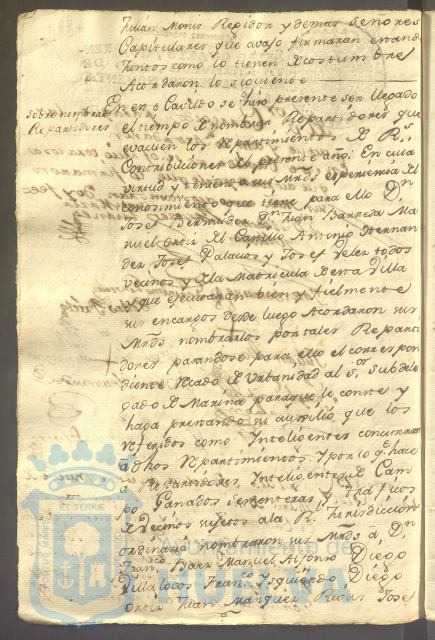 Julián Monis Regidor y demas Señores
Capitulares que avajo firmaran estando
Juntos como lo tienen de costumbre
Acordaron lo siguiente
sobre nombrar
Repartidores
En este Cavildo se hizo presente ser llegado
el tiempo de nombrar Repartidores que
evacuen los repartimientos de Rs
Contribuciones del presente año: En cuia
virtud y teniendo sus Mrds experiencia del
conocimiento que tiene para ello Dn
Josef Bermudez Dn Juan Barreda Ma
nuel Ortiz del Castillo Antonio Hernan
dez Josef Palacios y Josef Velez todos
vecinos y de la Matricula de esta Villa
y que ejecutaran bien y fielmente
sus encargos desde luego Acordaron sus
Mrds nombrarlos por tales Reparti
dores pasandose para ello el correspon
diente recado de Urbanidad al Sr Subdele
gado de Marina para que le conste y
haga prestando su auxilio que los
referidos como Inteligentes concurran
a dhos repartimientos, y por lo q. hace
a Repartidores Inteligentes de Cam
po Ganados sementeras y
de vecinos sujetos a la Rl Jurisdiccion
ordinaria nombraron sus Mrds a Dn
Franco Baez Manuel Alfonso Diego
Villalobos Franco Ysquierdo Diego
Ortiz Juan Marquez Josef
ET TERRA
Ayuntamiento de